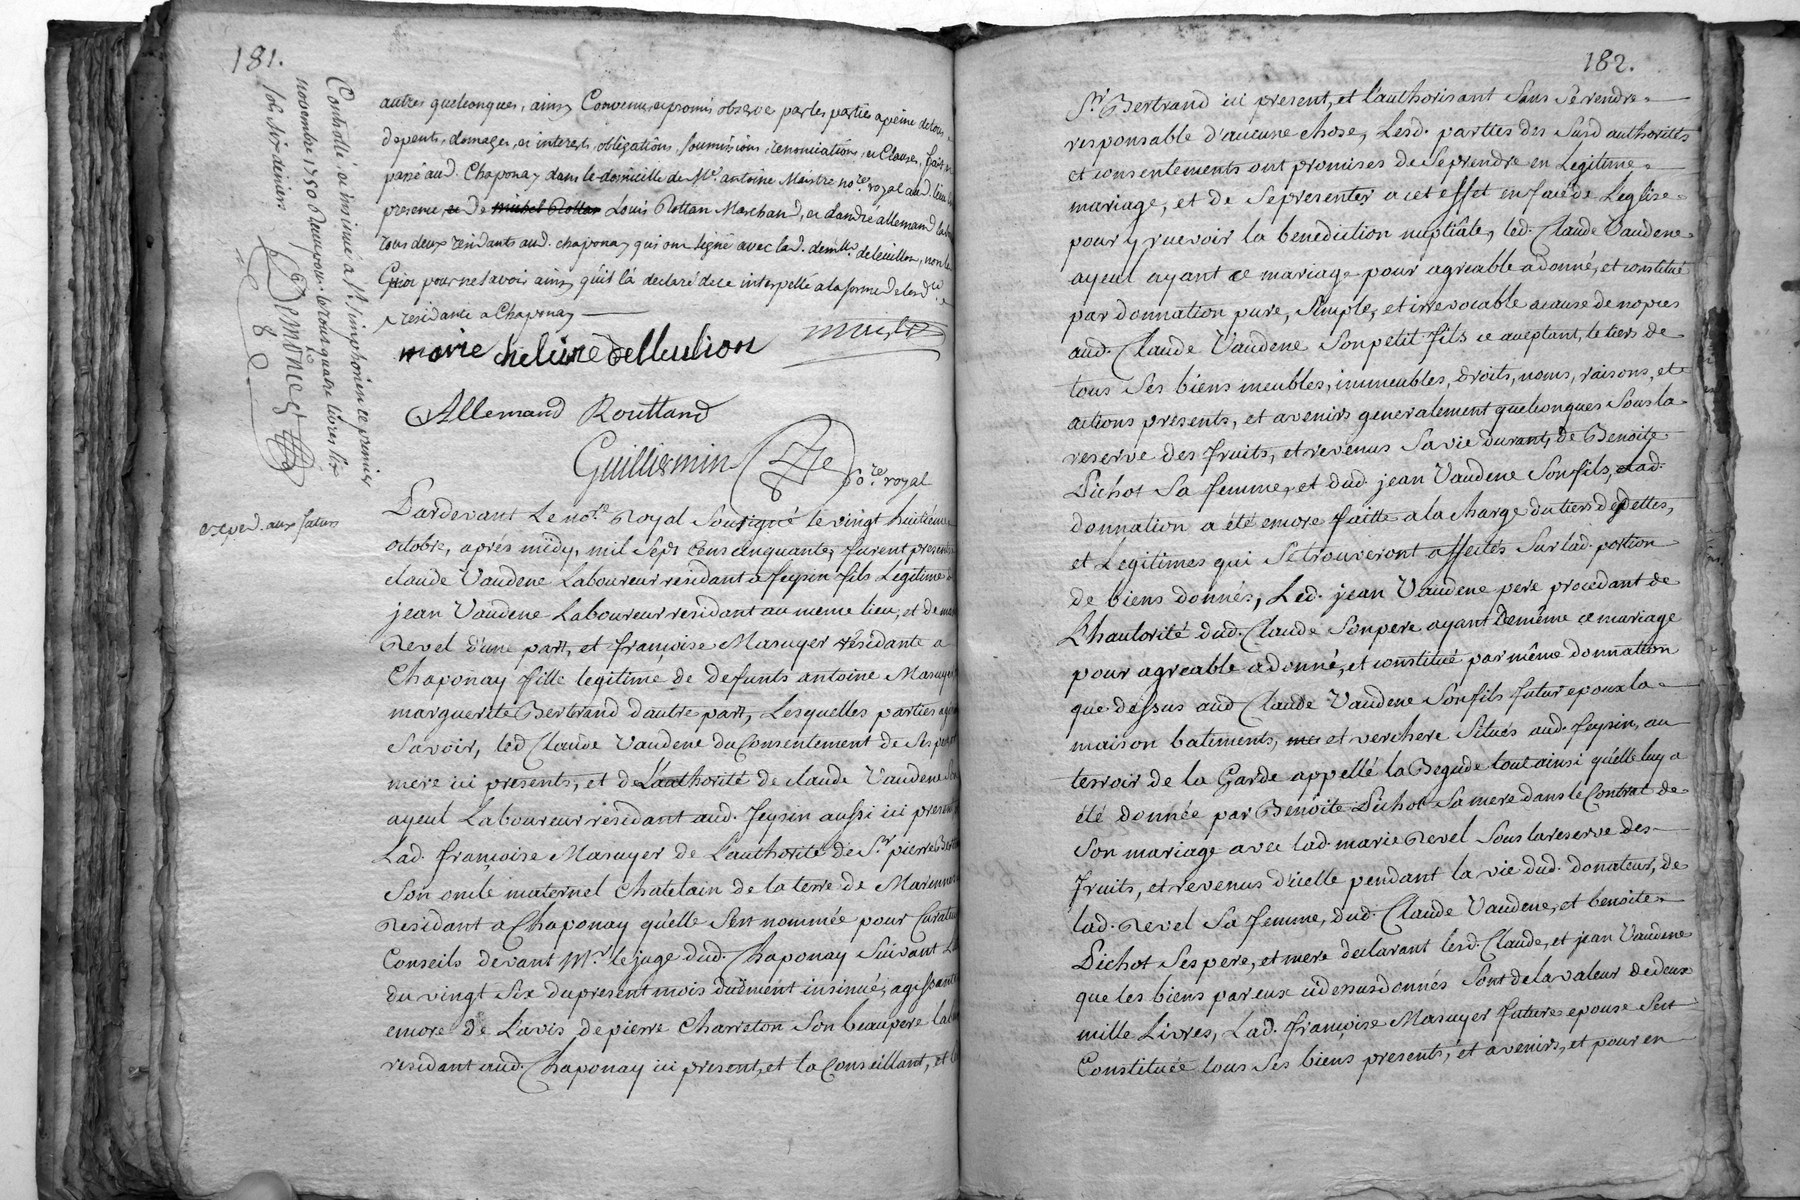 181.
Controllé et insinué a St. Simphorien ce premier
novembre 1750 Reçu pour le tout quatre livres dix
sols six deniers
Demonicet
exped. aux futurs
autres quelconques, ainsy Convenu et promis observé par les parties a peine de tous
depents, domages, et interests, obligations, soumissions, renonciations, et Clauses, fait et
passé aud. Chaponay dans le domicille de Me. antoine Maistre nore. royal aud. lieu
presence et de michel Rottan Louis Rottan Marchand, et d'andré allemand
tous deux residants aud. chaponay qui ont signé avec lad. demlle. deleuillon, non le
pour ne savoir ainsy qu'il l'a declaré de ce interpellé a la forme de l'ordce.
residante a Chaponay
marie helaine delleulion
Allemand Routtand
Guilliermin
No.re royal
Pardevant Le nore. Royal Sousigné le vingt huitieme
octobre, aprés midy, mil Sept Cens cinquante, furent presents
claude Vaudene Laboureur residant a feysin fils Legitime de
jean Vaudene Laboureur residant au meme lieu, et de marie
Revel d'une part, et françoise Masuyer residante a
Chaponay fille legitime de defunts antoine Masuyer
marguerite Bertrand d'autre part, Lesquelles parties
Savoir, led. Claude Vaudene du Consentement de Ses pere et
mere ici presents, et de L'authorité de claude Vaudene Son
ayeul Laboureur residant aud. feysin aussi ici present
Lad. françoise Masuyer de L'authorité de Sr. pierre Bertrand
Son oncle maternel Chatelain de la terre de Marennes
Residant a Chaponay qu'elle S'est nommée pour Curateur
Conseils devant Mr. le juge dud. Chaponay Suivant
du vingt Six du present mois duëment insinué, agissante
encore de L'avis de pierre Charreton Son beaupere
residant aud. Chaponay ici present, et la Conseillant, et
182.
Sr. Bertrand ici present, et l'authorisant Sans Se rendre
responsable d'aucune chose, Lesd. parties des Susd. authorités
et consentements ont promises de Se prendre en Legitime
mariage, et de Se presenter a cet effet en face de L'eglise
pour y recevoir la benediction nuptiâle, led. Claude Vaudene
ayeul ayant ce mariage pour agreable a donné, et constitué
par donnation pure, Simple, et irrevocable a cause de nopces
aud. Claude Vaudene Son petit fils ce acceptant, le tiers de
tous Ses biens meubles, immeubles, droits, noms, raisons, et
actions presents, et avenirs generalement quelconques Sous la
reserve des fruits, et revenus Sa vie durant, de Benoite
Pichot Sa femme, et dud. jean Vaudene Son fils, Lad.
donnation a été encore faitte a la charge du tiers des dettes,
et Legitimes qui Se trouveront affectés Sur lad. portion
de biens donnés, Led. jean Vaudene pere procedant de
L'hautorité dud. Claude Son pere ayant de même ce mariage
pour agreable a donné, et constitué par même donnation
que dessus aud. Claude Vaudene Son fils futur epoux la
maison batiments, et verchere Situés aud. feysin, au
terroir de la Garde appellé la Begude tout ainsi qu'elle luy a
été donnée par Benôite Pichot Sa mere dans le Contrat de
Son mariage avec lad. marie Revel Sous la reserve des
fruits, et revenus d'icelle pendant la vie dud. donateur, de
lad. Revel Sa femme, dud. Claude Vaudene, et benoite
Pichot Ses pere, et mere declarant lesd. Claude, et jean Vaudene
que les biens par eux cidessus donnés Sont de la valeur de deux
mille Livres, Lad. françoise Masuyer future epouse S'est
Constituée tous Ses biens presents, et avenirs, et pour en